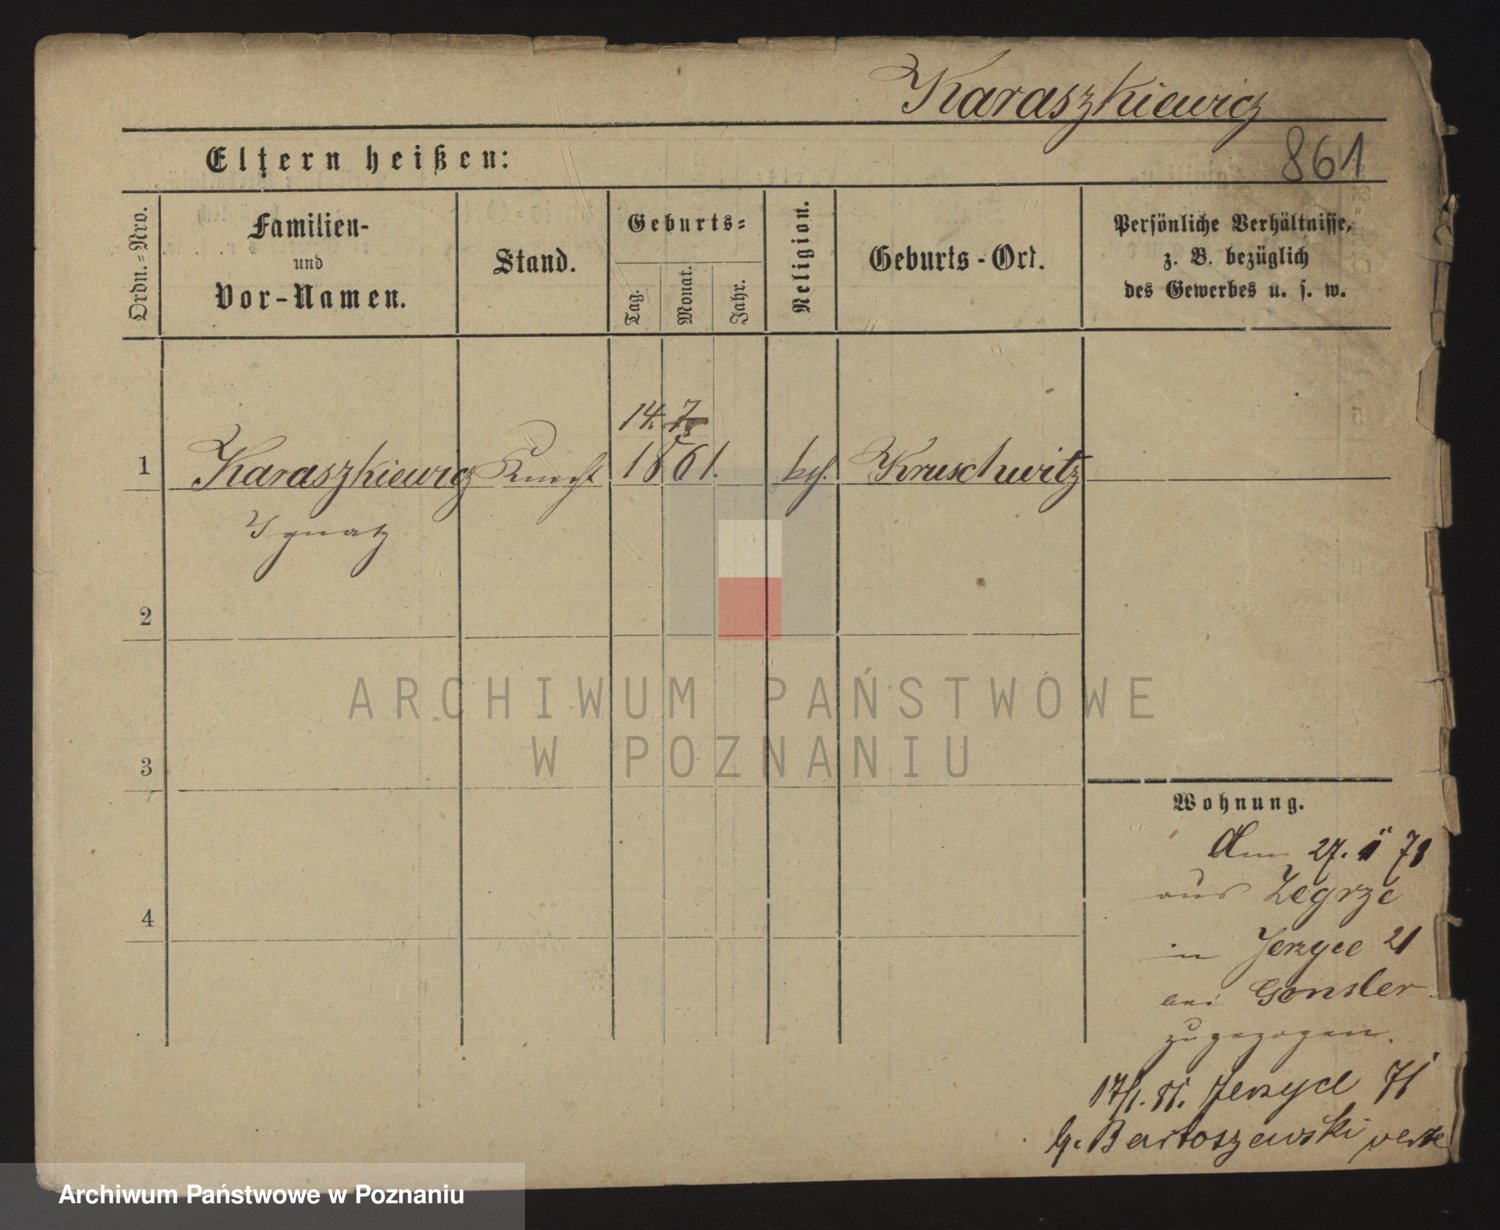 Karaszkiewicz
861
Eltern heißen:
Ordn.-Nro.
Familien-
und
Vor-Namen.
Stand.
Geburts-
Tag.
Monat.
Jahr.
Religion.
Geburts-Ort.
Persönliche Verhältnisse,
z. B. bezüglich
des Gewerbes u. s. w.
14. 7
1 Karaszkiewicz Knecht 1861. kth. Kruschwitz
Ignatz
2
3
4
ARCHIWUM PAŃSTWOWE
W POZNANIU
Wohnung.
Am 27.
aus Zegrze
in Jerzyce 21
bei Gonsler
zugezogen.
17/1. 81. Jerzyce 71
b. Bartoszewski
Archiwum Państwowe w Poznaniu